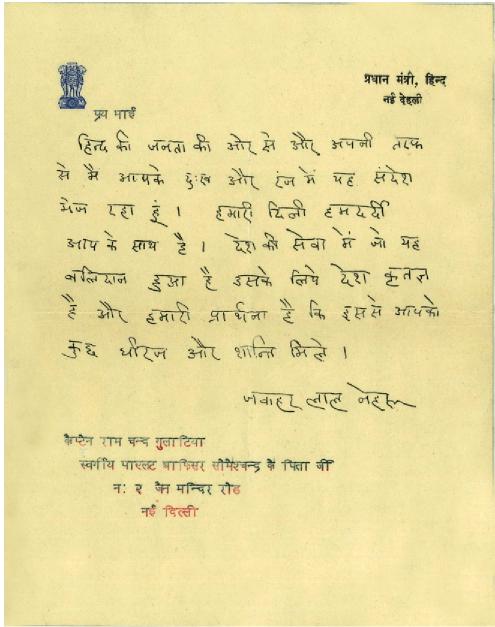 प्रधान मंत्री, हिन्द
नई देहली
प्रय भाई
हिन्द की जनता की ओर से और अपनी तरफ
से मैं आपके दुःख और रंज में यह संदेश
भेज रहा हूं । हमारी दिली हमदर्दी
आप के साथ है । देश की सेवा में जो यह
बलिदान हुआ है उसके लिये देश कृतज्ञ
है और हमारी प्रार्थना है कि इससे आपको
कुछ धीरज और शान्ति मिले ।
जवाहर लाल नेहरू
कैप्टेन राम चन्द गुलाटिया
स्वर्गीय पाइलट आफिसर सोमेशचन्द्र के पिता जी
नः २ जैन मन्दिर रोड
नई दिल्ली